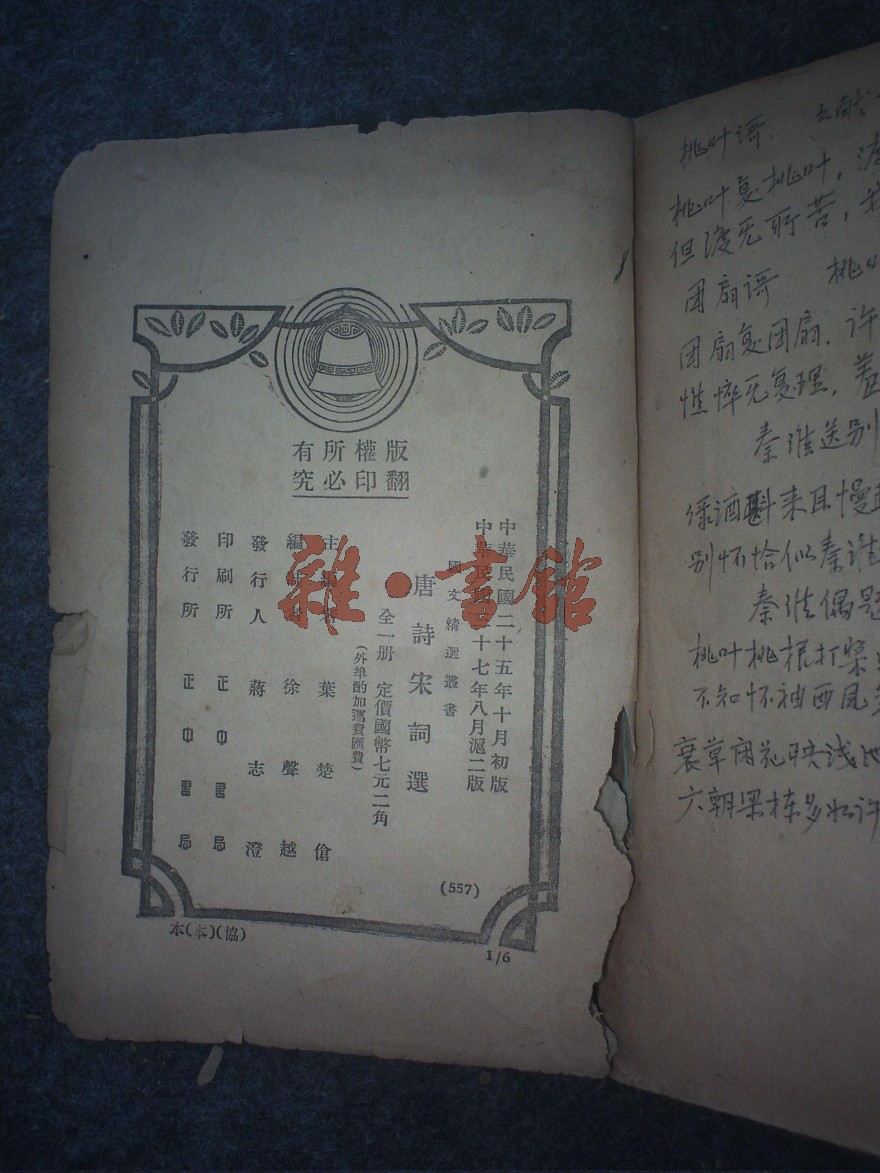 版權所有
翻印必究
中華民國二十五年十月初版
中華民國三十七年八月滬二版
國文精選叢書
唐詩宋詞選
全一册 定價國幣七元二角
(外埠酌加運費匯費)
主編者 葉楚傖
編註者 徐聲越
發行人 蔣志澄
印刷所 正中書局
發行所 正中書局
(557)
本(本)(協)
1/6
雜·書館
桃叶歌
桃叶复桃叶,渡
但渡无所苦,我
团扇歌 桃叶
团扇复团扇,许
憔悴无复理,羞
秦淮送别
绿酒斟来且慢
别怀恰似秦淮
秦淮偶题
桃叶桃根打桨
不知怀袖西风
衰草闲花映浅池
六朝梁栋多如许